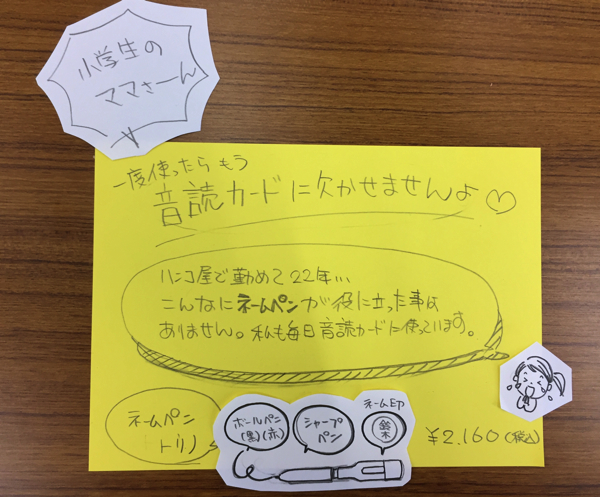 小学生の
ママさーん
一度使ったら もう
音読カードに欠かせませんよ♡
ハンコ屋で勤めて22年…
こんなにネームペンが役に立った事は
ありません。私も毎日音読カードに使っています。
ネームペン
トリノ
ボールペン
(黒)(赤)
シャープ
ペン
ネーム印
鈴木
¥2.160(税込)